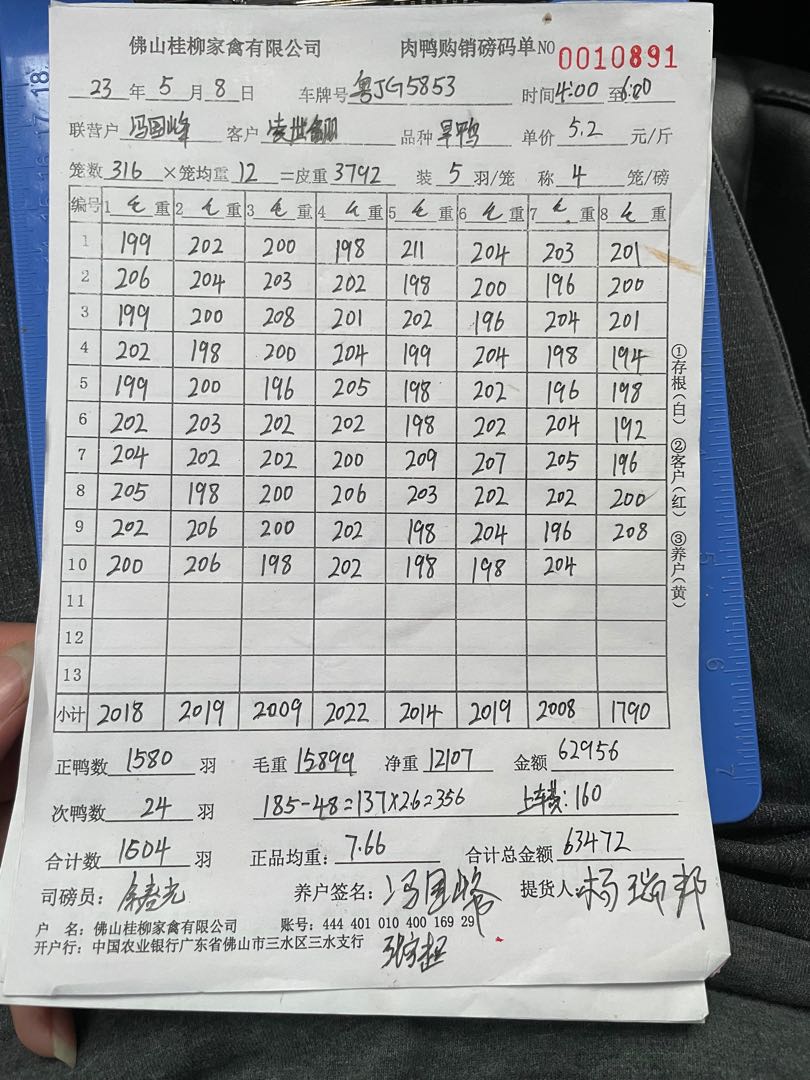 佛山桂柳家禽有限公司 肉鸭购销磅码单NO 0010891
23年5月8日 车牌号粤JG5853 时间4:00至6:00
联营户冯国峰 客户 品种旱鸭 单价5.2元/斤
笼数316×笼均重12=皮重3792 装5羽/笼 称4笼/磅
编号 1 毛重 2 毛重 3 毛重 4 毛重 5 毛重 6 毛重 7 毛重 8 毛重
1 199 202 200 198 211 204 203 201
2 206 204 203 202 198 200 196 200
3 199 200 208 201 202 196 204 201
4 202 198 200 204 199 204 198 194
5 199 200 196 205 198 202 196 198
6 202 203 202 202 198 202 204 192
7 204 202 202 200 209 207 205 196
8 205 198 200 206 203 202 202 200
9 202 206 200 202 198 204 196 208
10 200 206 198 202 198 198 204
11
12
13
小计 2018 2019 2009 2022 2014 2019 2008 1790
①存根(白) ②客户(红) ③养户(黄)
正鸭数1580羽 毛重15899 净重12107 金额62956
次鸭数24羽 185-48=137×26=356 上车费:160
合计数1504羽 正品均重:7.66 合计总金额63472
司磅员: 养户签名:冯国峰 提货人:杨瑞邦
户 名:佛山桂柳家禽有限公司 账号:444 401 010 400 169 29
开户行:中国农业银行广东省佛山市三水区三水支行